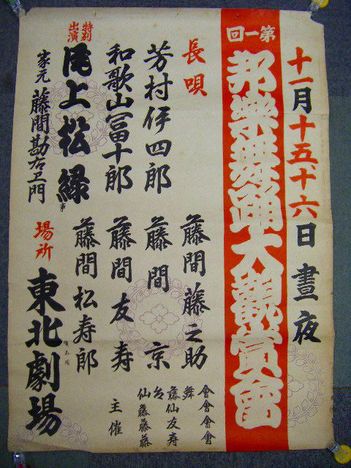 十一月十五十六日 晝夜
第一回
邦樂舞踊大觀賞會
長唄
芳村伊四郎
和歌山富十郎
特別出演
尾上松緑事
家元 藤間勘右衛門
藤間藤之助
藤間京
藤間友寿
藤間松寿郎
場所
東北劇場
主催